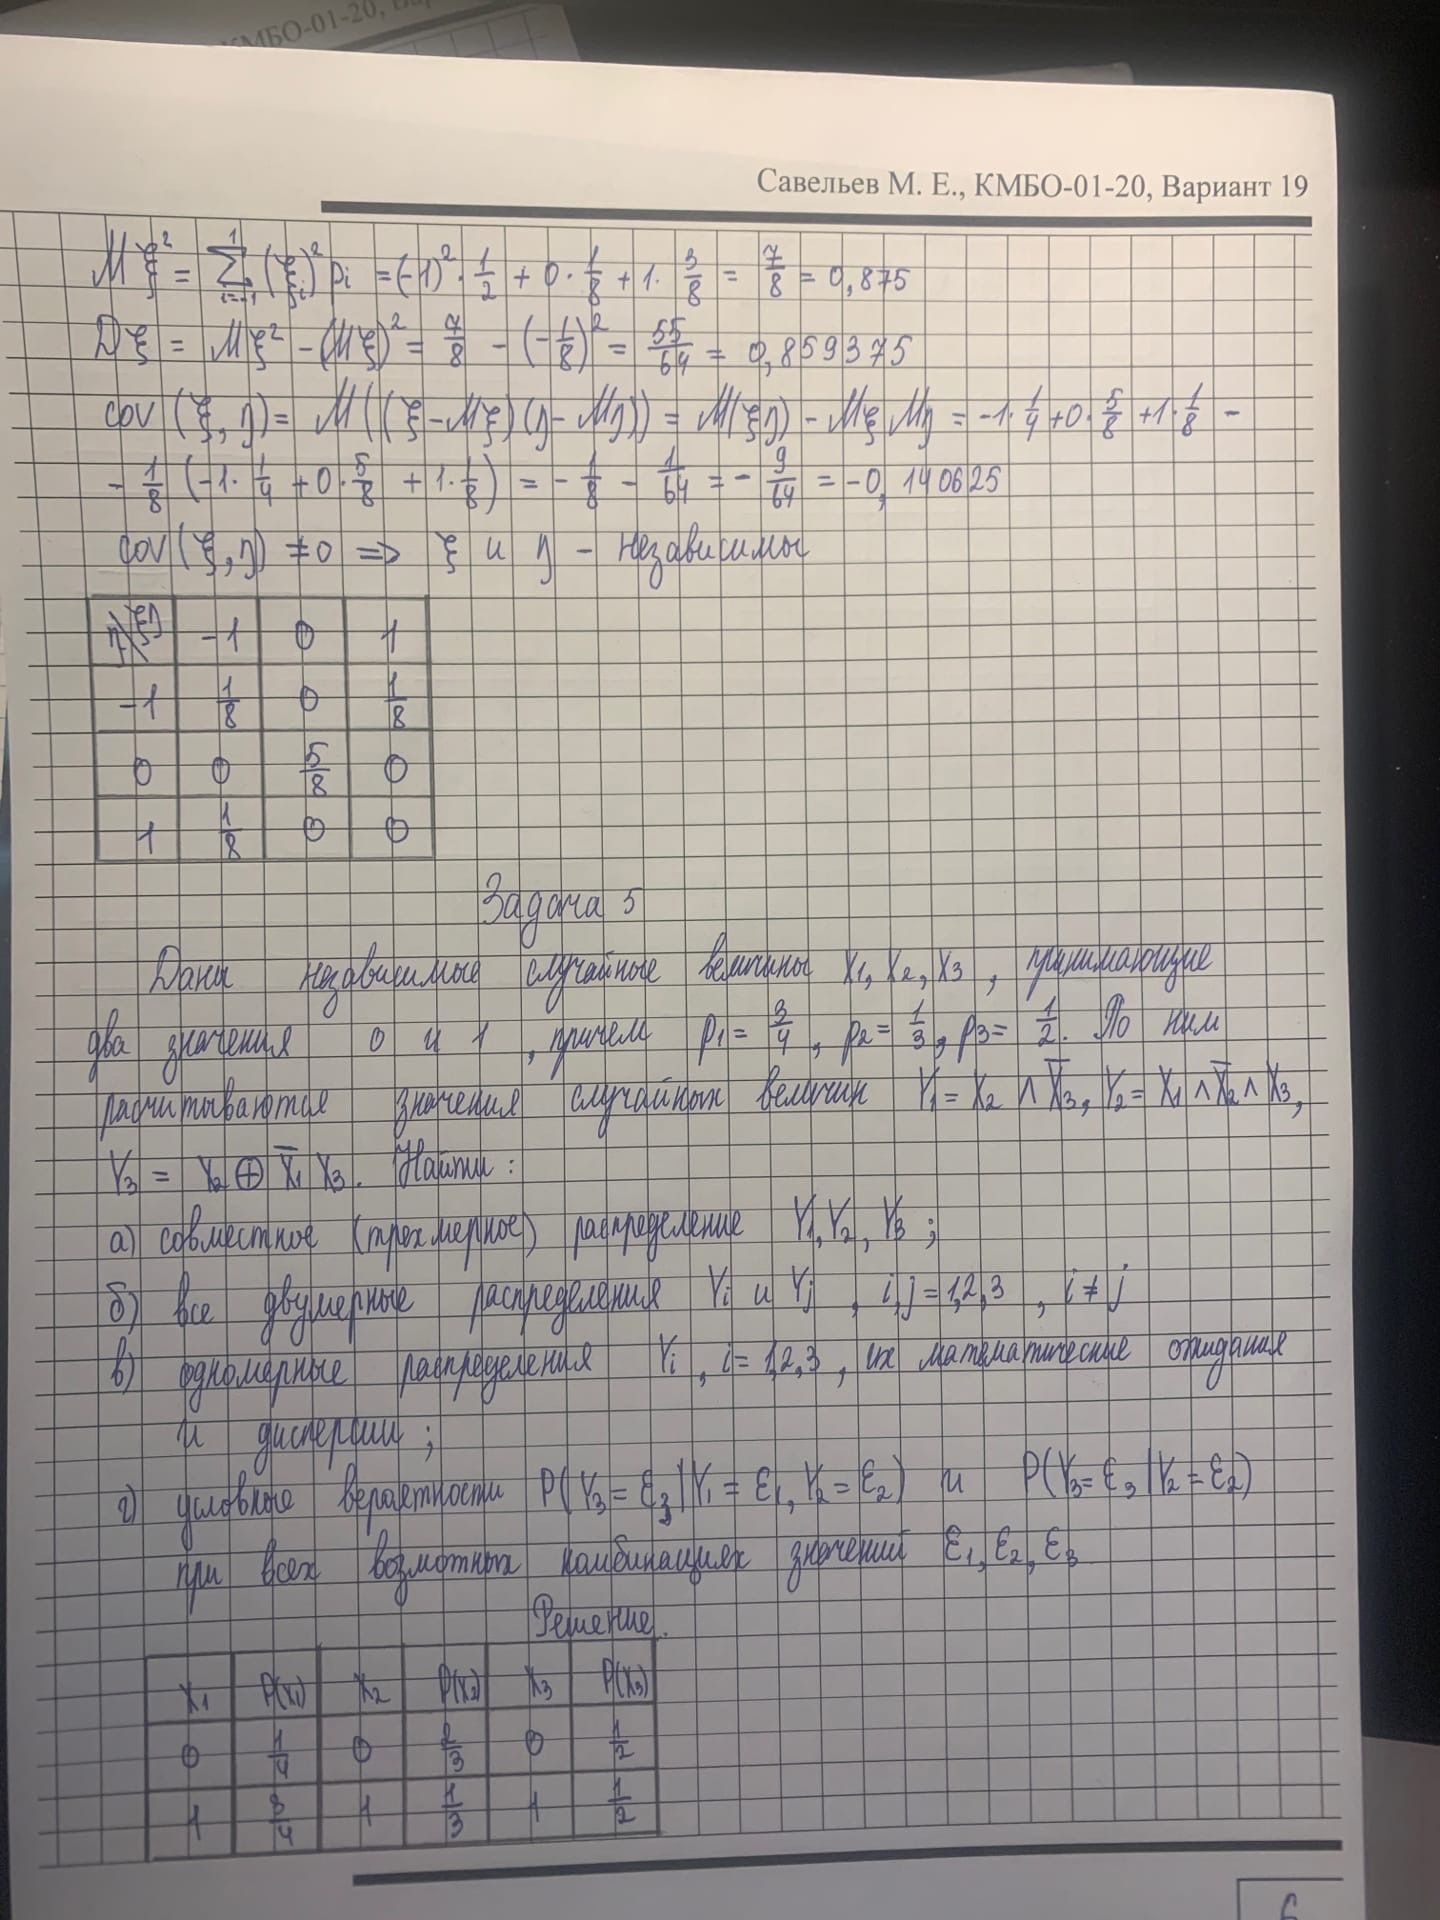 КМБО-01-20, Вар
Савельев М. Е., КМБО-01-20, Вариант 19
Mξ² = ∑_{i=-1}^{1} (ξi)² pi = (-1)² · 1/2 + 0 · 1/8 + 1 · 3/8 = 7/8 = 0,875
Dξ = Mξ² - (Mξ)² = 7/8 - (-1/8)² = 55/64 = 0,859375
cov (ξ, η) = M((ξ - Mξ)(η - Mη)) = M(ξη) - Mξ Mη = -1 · 1/4 + 0 · 5/8 + 1 · 1/8 -
- 1/8 (-1 · 1/4 + 0 · 5/8 + 1 · 1/8) = - 1/8 - 1/64 = - 9/64 = -0,140625
cov (ξ, η) ≠ 0 => ξ и η - независимы
η\ξη -1 0 1
-1 1/8 0 1/8
0 0 5/8 0
1 1/8 0 0
Задача 5
Даны независимые случайные величины X1, X2, X3, принимающие
два значения 0 и 1, причем p1 = 3/4, p2 = 1/3, p3 = 1/2. По ним
расчитываются значения случайных величин Y1 = X2 ∧ X̅3, Y2 = X1 ∧ X̅2 ∧ X3,
Y3 = X2 ⊕ X̅1 X3. Найти:
а) совместное (трехмерное) распределение Y1, Y2, Y3;
б) все двумерные распределения Yi и Yj, i,j = 1,2,3, i ≠ j
в) одномерные распределения Yi, i = 1,2,3, их математические ожидания
и дисперсии;
г) условные вероятности P(Y3 = ε3 | Y1 = ε1, Y2 = ε2) и P(Y3 = ε3 | Y2 = ε2)
при всех возможных комбинациях значений ε1, ε2, ε3
Решение.
X1 P(X1) X2 P(X2) X3 P(X3)
0 1/4 0 2/3 0 1/2
1 3/4 1 1/3 1 1/2
6